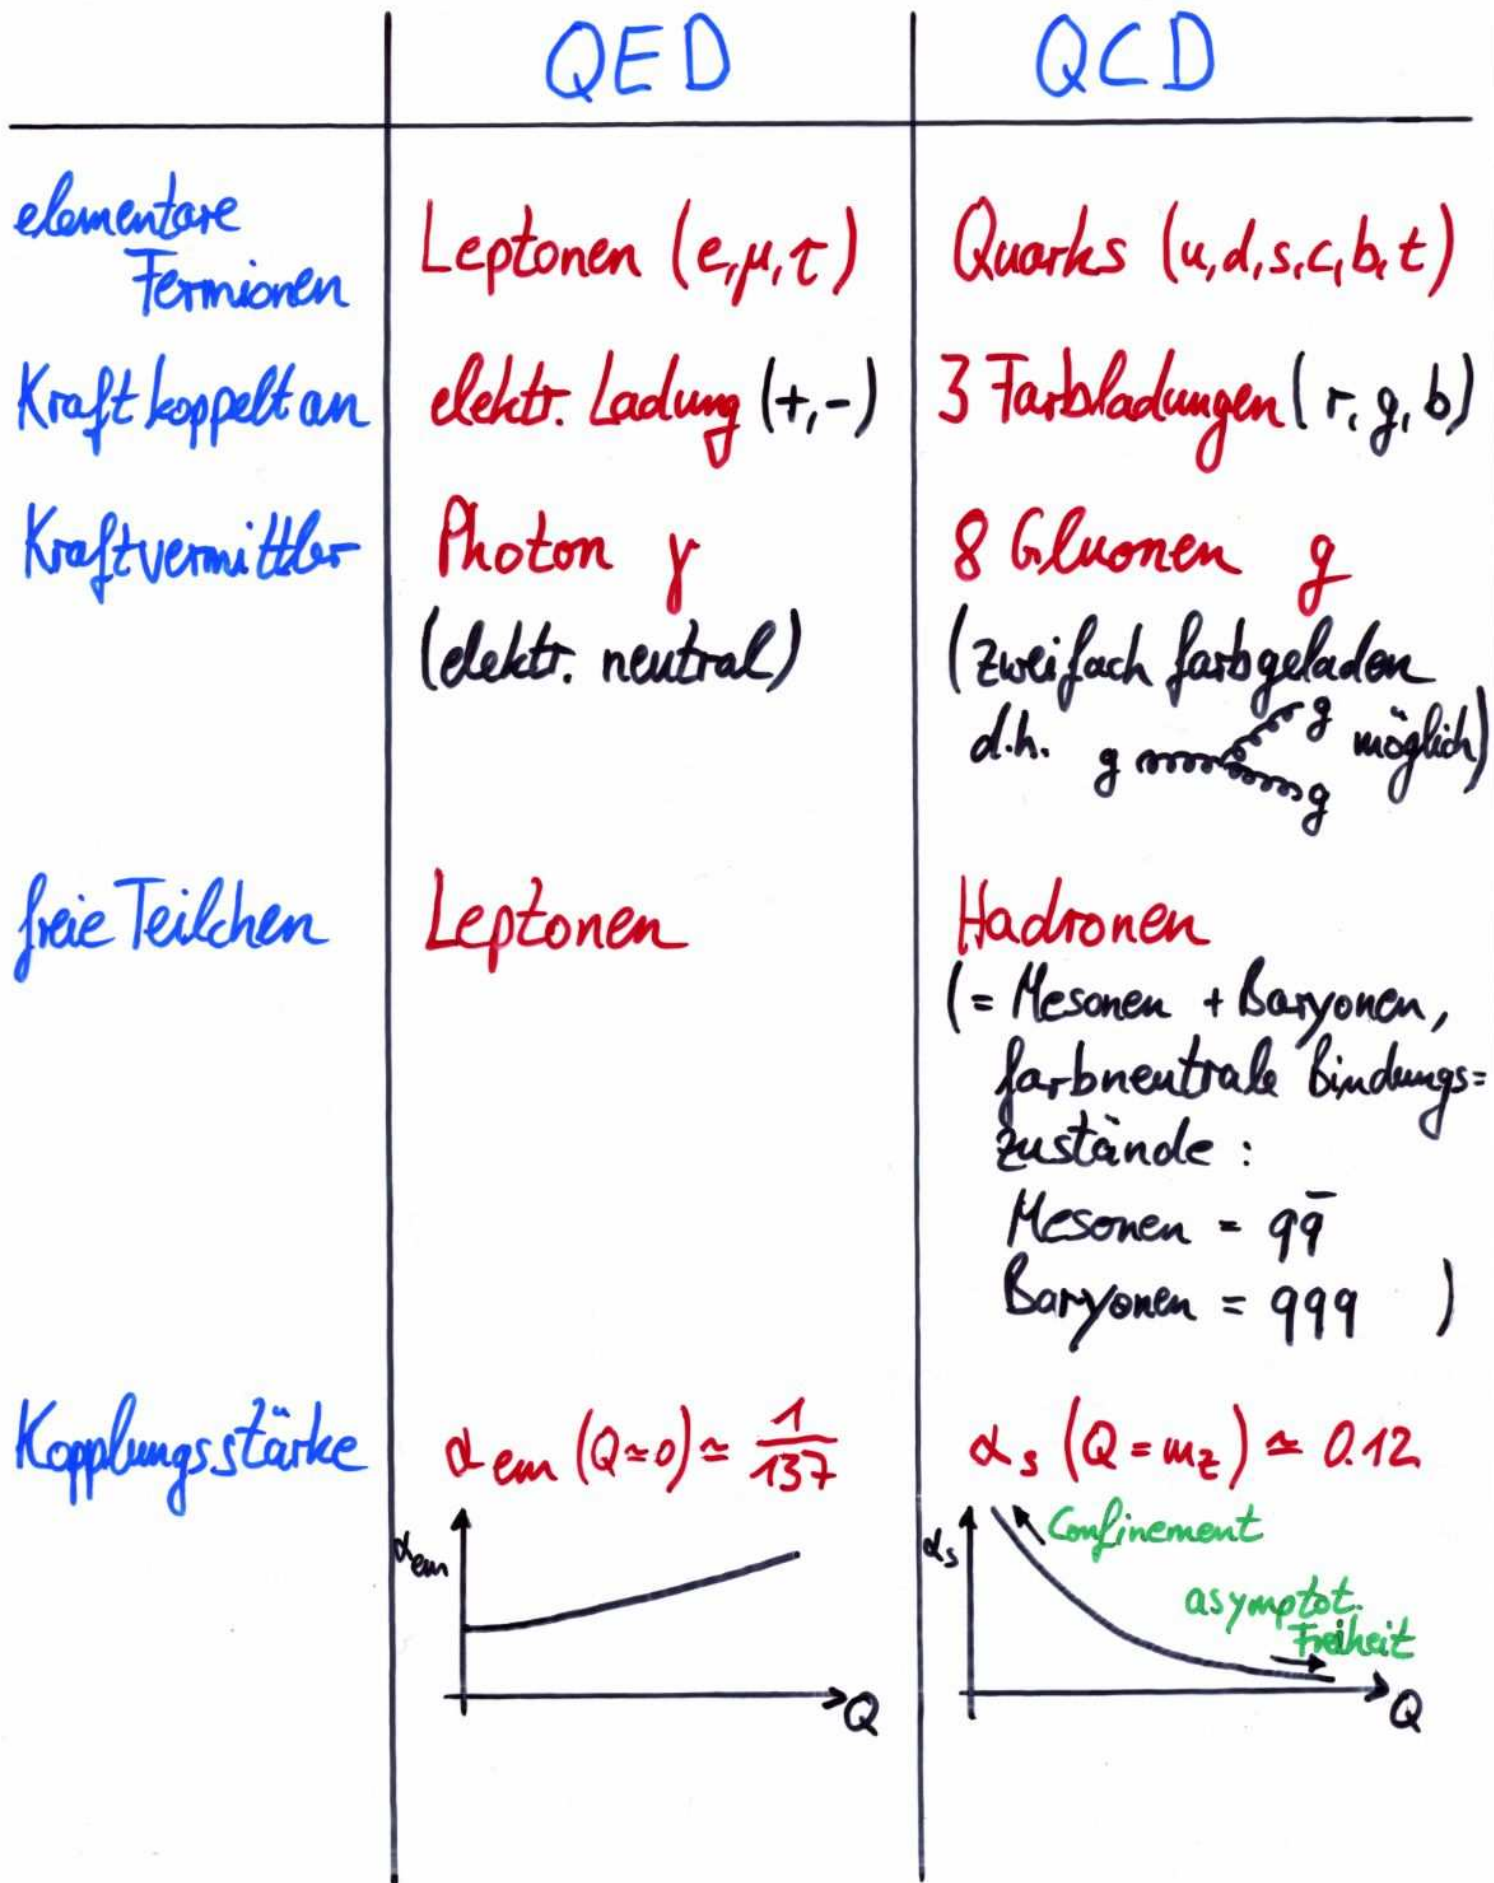 QED QCD
elementare
Fermionen
Leptonen (e, μ, τ) Quarks (u, d, s, c, b, t)
Kraft koppelt an elektr. Ladung (+, -) 3 Farbladungen (r, g, b)
Kraftvermittler Photon γ 8 Gluonen g
(elektr. neutral) (zweifach farbgeladen
d.h. g g g möglich)
freie Teilchen Leptonen Hadronen
(= Mesonen + Baryonen,
farbneutrale Bindungs=
zustände :
Mesonen = qq̄
Baryonen = qqq )
Kopplungsstärke α em (Q ≃ 0) ≃ 1/137 α s (Q = m z) ≃ 0.12
α em α s Confinement
asymptot.
Freiheit
Q Q